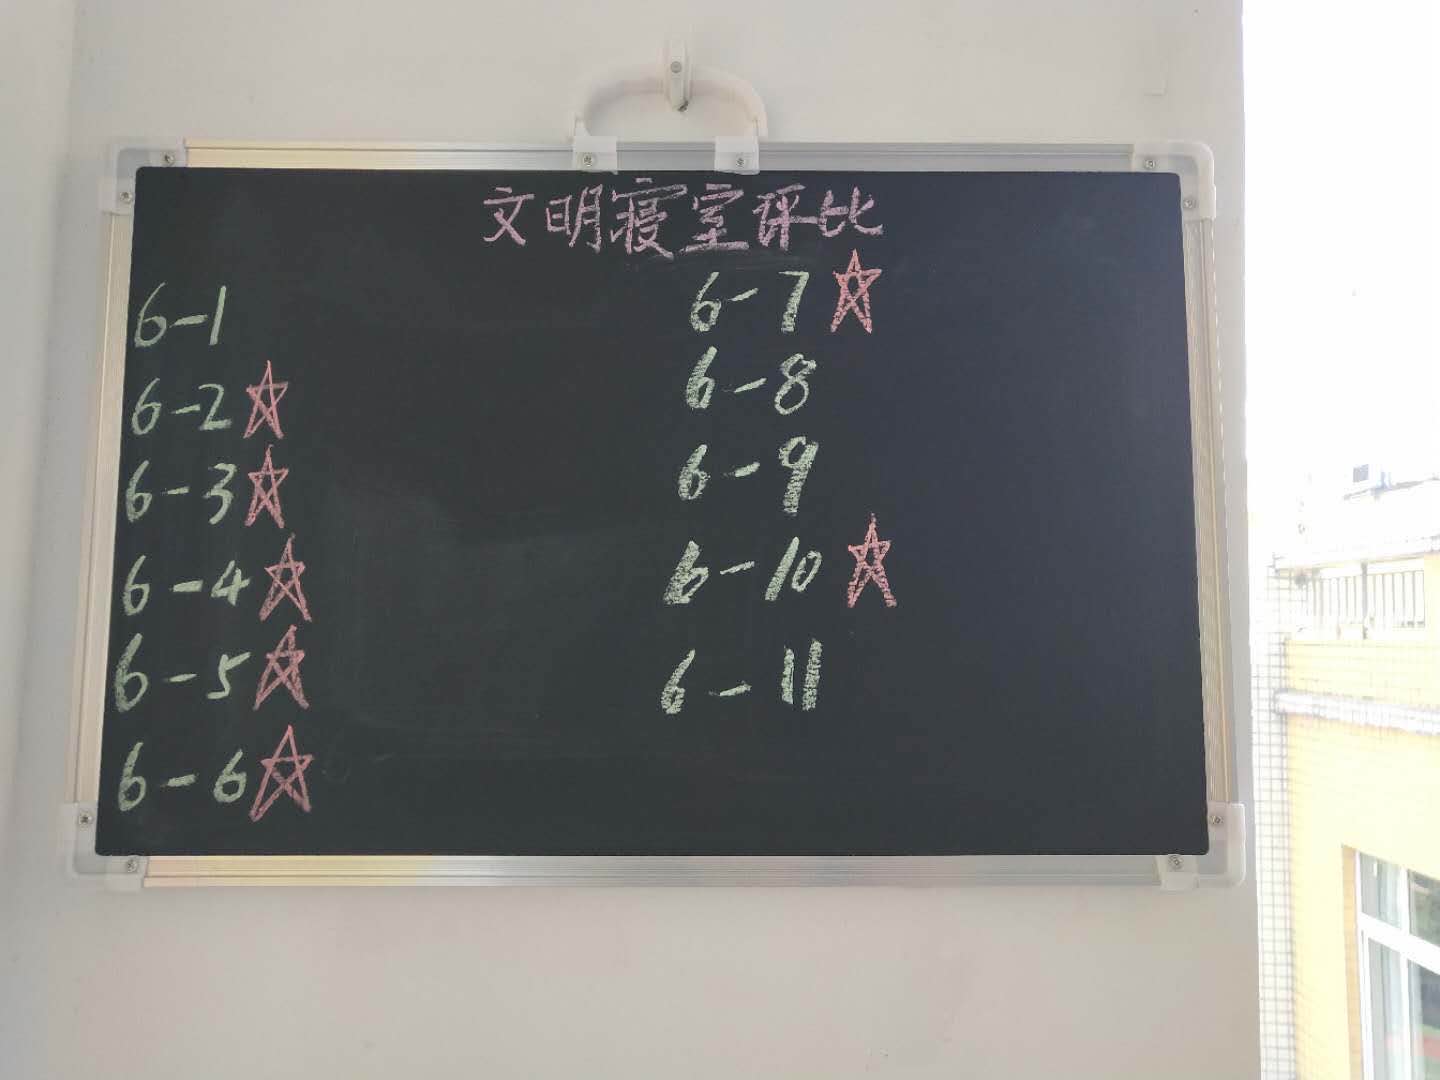 文明寝室评比
6-1
6-2☆
6-3☆
6-4☆
6-5☆
6-6☆
6-7☆
6-8
6-9
6-10☆
6-11